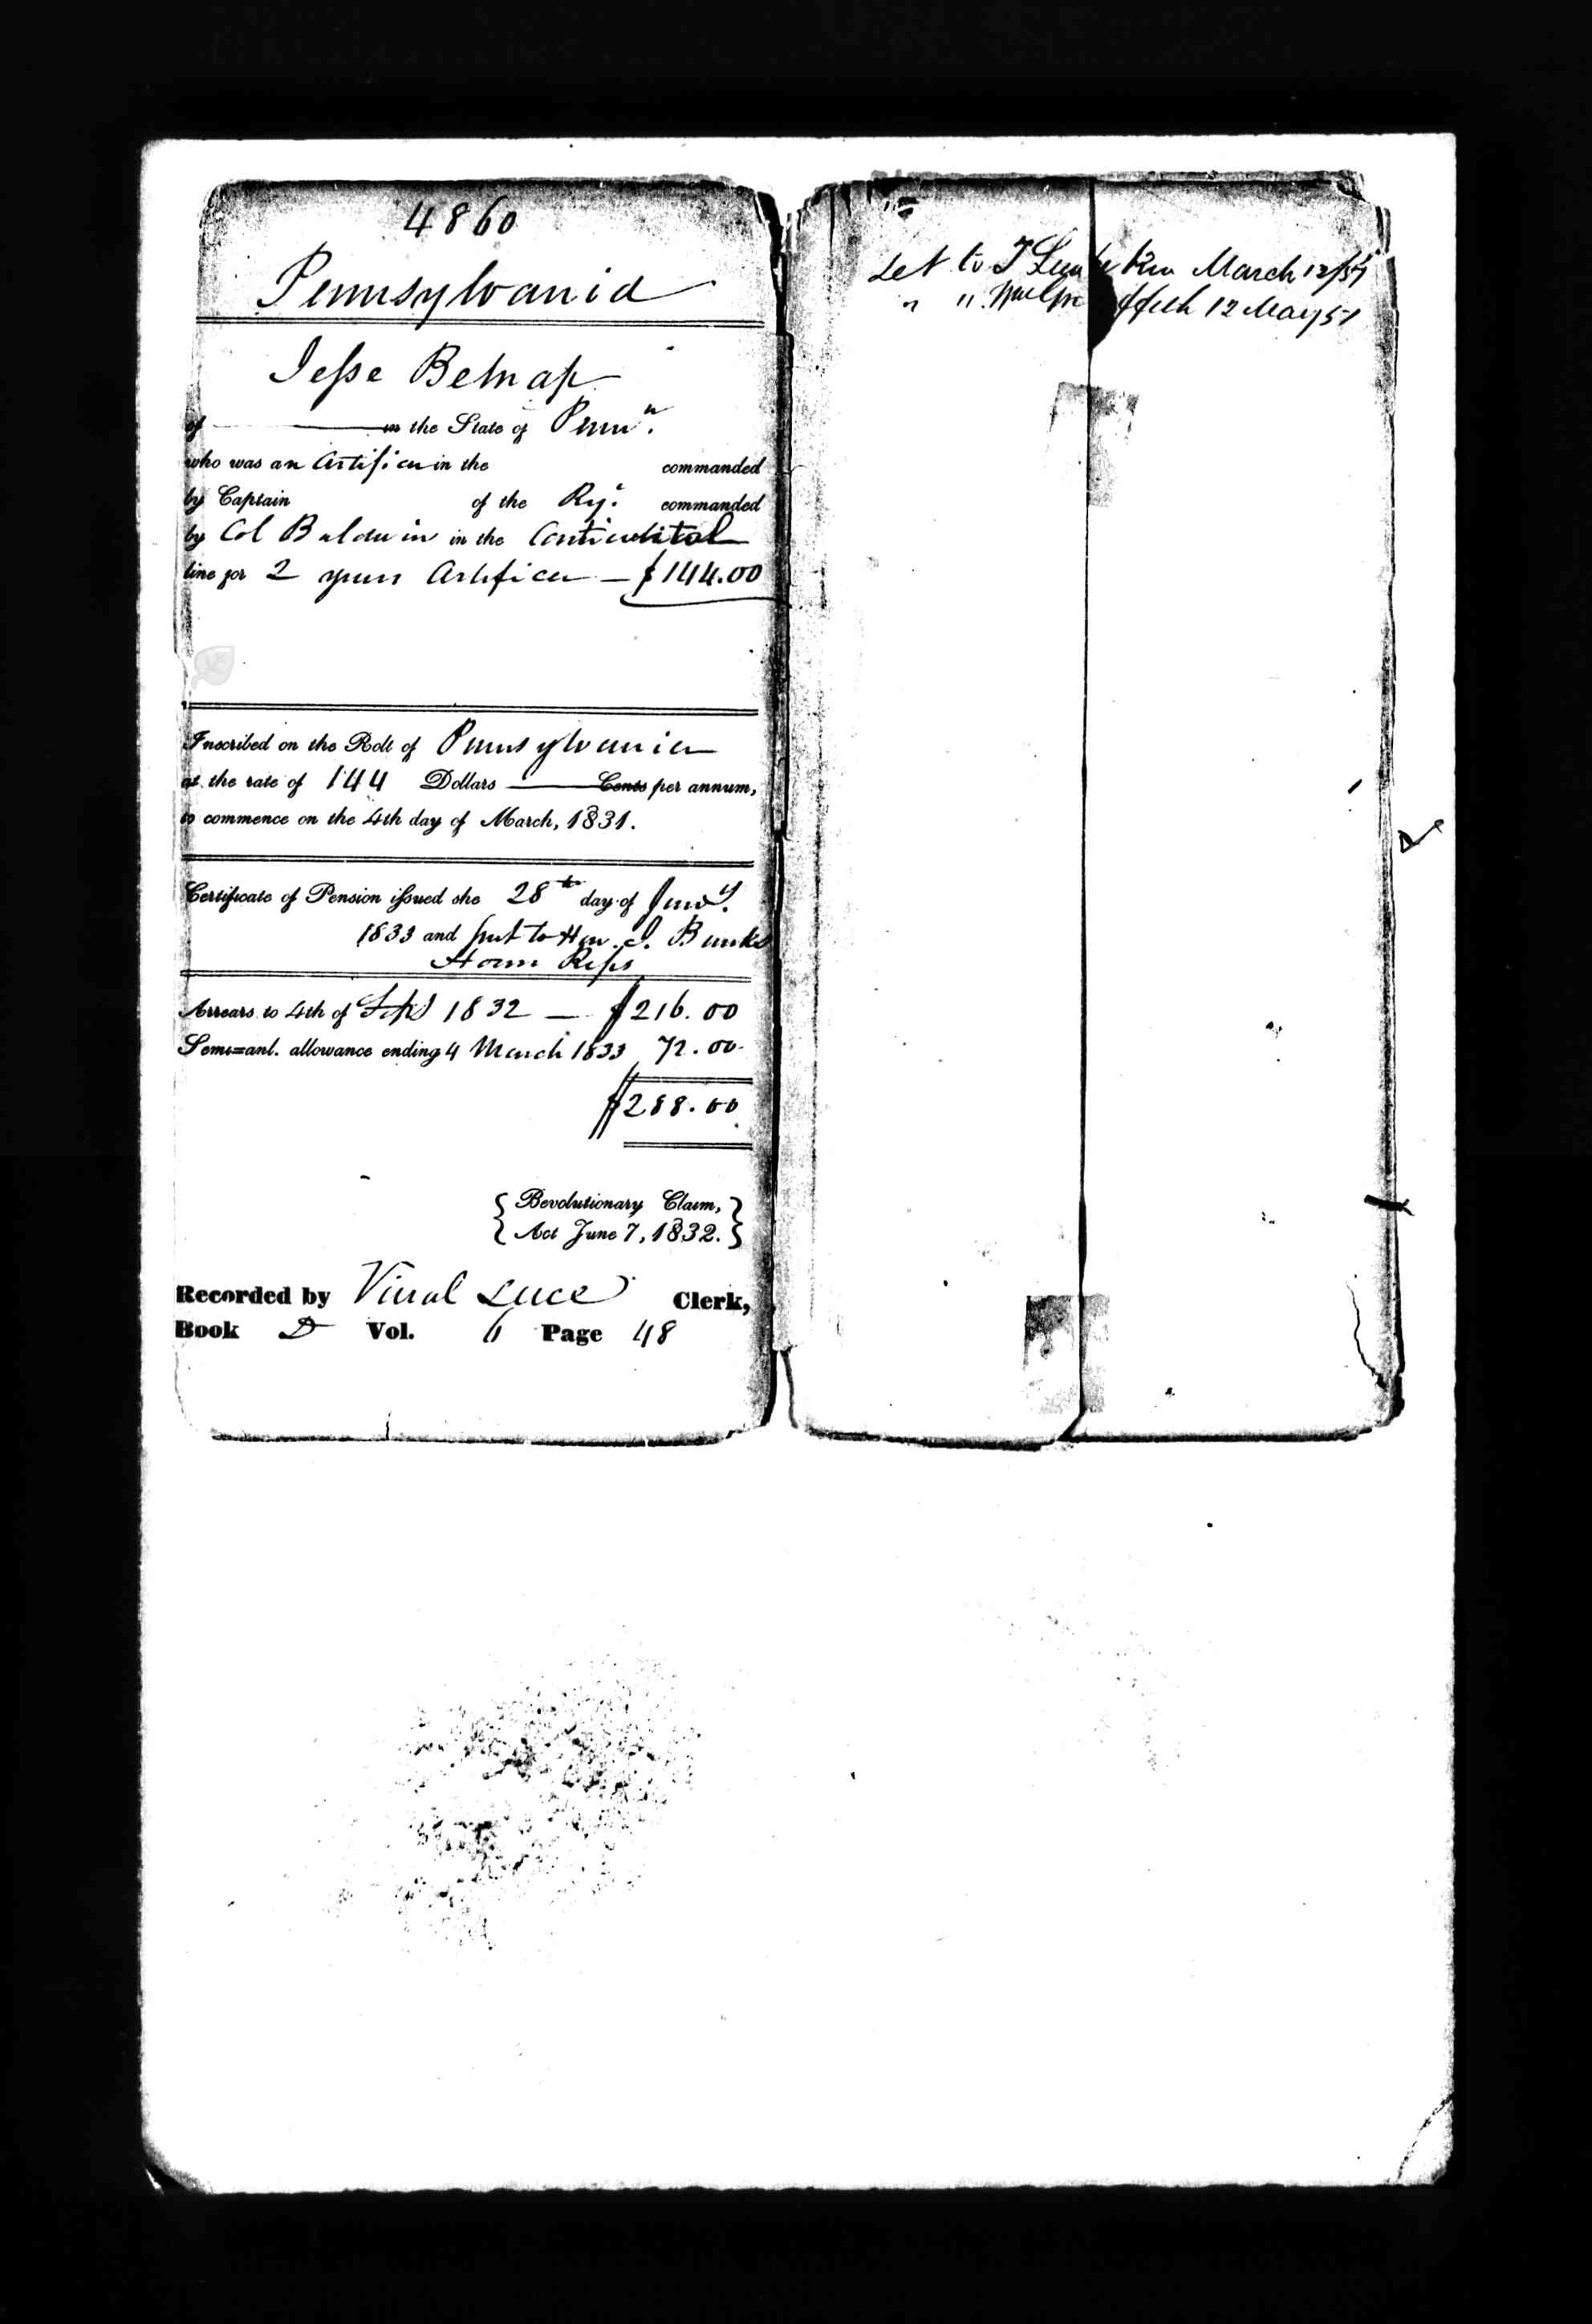 4860
Pennsylvania
Jesse Belnap
of in the State of Penn.n
who was an Artificer in the commanded
by Captain of the Reg.t commanded
by Col Baldwin in the Continental
line for 2 years Artificer — $144.00
Inscribed on the Roll of Pennsylvania
at the rate of 144 Dollars Cents per annum,
to commence on the 4th day of March, 1831.
Certificate of Pension issued the 28th day of Jan.y
1833 and sent to Hon. J. Banks
House Reps
Arrears to 4th of Sept 1832 — $216.00
Semi-anl. allowance ending 4 March 1833 72.00
$288.00
{ Revolutionary Claim, }
{ Act June 7, 1832. }
Recorded by Vinal Luce Clerk,
Book D Vol. 6 Page 48
Let to T March 12/57
" " 12 May 57